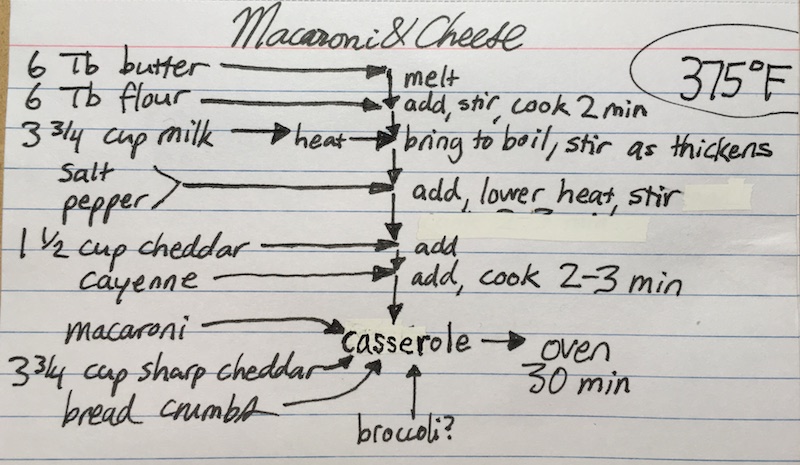 Macaroni & Cheese
375°F
6 Tb butter
melt
6 Tb flour
add, stir, cook 2 min
3 3/4 cup milk heat bring to boil, stir as thickens
salt
pepper
add, lower heat, stir
1 1/2 cup cheddar add
cayenne add, cook 2-3 min
macaroni
casserole
oven
30 min
3 3/4 cup sharp cheddar
bread crumbs
broccoli?